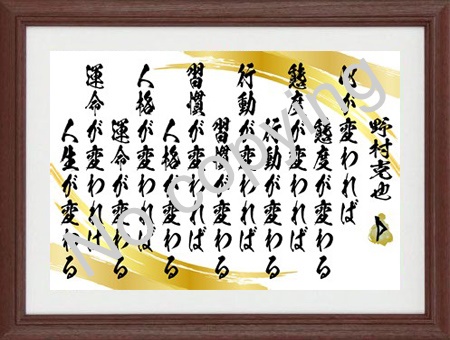 野村克也
心が変われば
態度が変わる
態度が変われば
行動が変わる
行動が変われば
習慣が変わる
習慣が変われば
人格が変わる
人格が変われば
運命が変わる
運命が変われば
人生が変わる
No copying